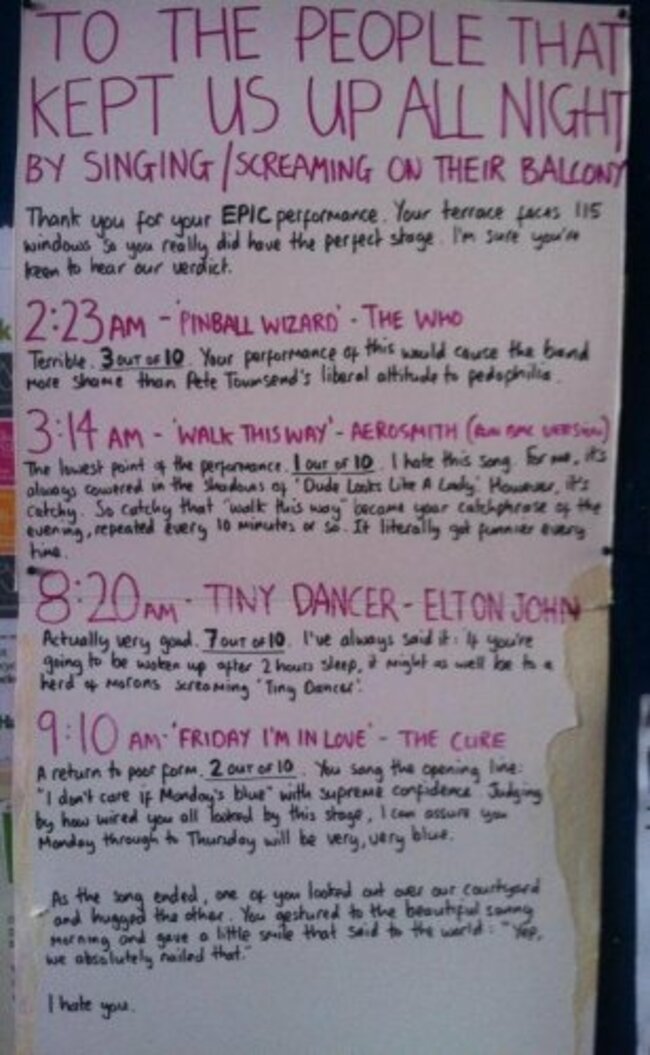 TO THE PEOPLE THAT
KEPT US UP ALL NIGHT
BY SINGING/SCREAMING ON THEIR BALCONY
Thank you for your EPIC performance. Your terrace faces 115
windows so you really did have the perfect stage. I'm sure you're
keen to hear our verdict.
2:23 AM - 'PINBALL WIZARD' - THE WHO
Terrible. 3 OUT OF 10. Your performance of this would cause the band
more shame than Pete Townsend's liberal attitude to pedophilia.
3:14 AM - 'WALK THIS WAY' - AEROSMITH (RUN DMC VERSION)
The lowest point of the performance. 1 OUT OF 10. I hate this song. For me, it's
always cowered in the shadows of 'Dude Looks Like A Lady'. However, it's
catchy. So catchy that "walk this way" became your catchphrase of the
evening, repeated every 10 minutes or so. It literally got funnier every
time.
8:20 AM - TINY DANCER - ELTON JOHN
Actually very good. 7 OUT OF 10. I've always said it: if you're
going to be woken up after 2 hours sleep, it might as well be to a
herd of morons screaming 'Tiny Dancer'.
9:10 AM - 'FRIDAY I'M IN LOVE' - THE CURE
A return to poor form. 2 OUT OF 10. You sang the opening line:
"I don't care if Monday's blue" with supreme confidence. Judging
by how wired you all looked by this stage, I can assure you
Monday through to Thursday will be very, very blue.
As the song ended, one of you looked out over our courtyard
and hugged the other. You gestured to the beautiful sunny
morning and gave a little smile that said to the world: "Yep,
we absolutely nailed that."
I hate you.